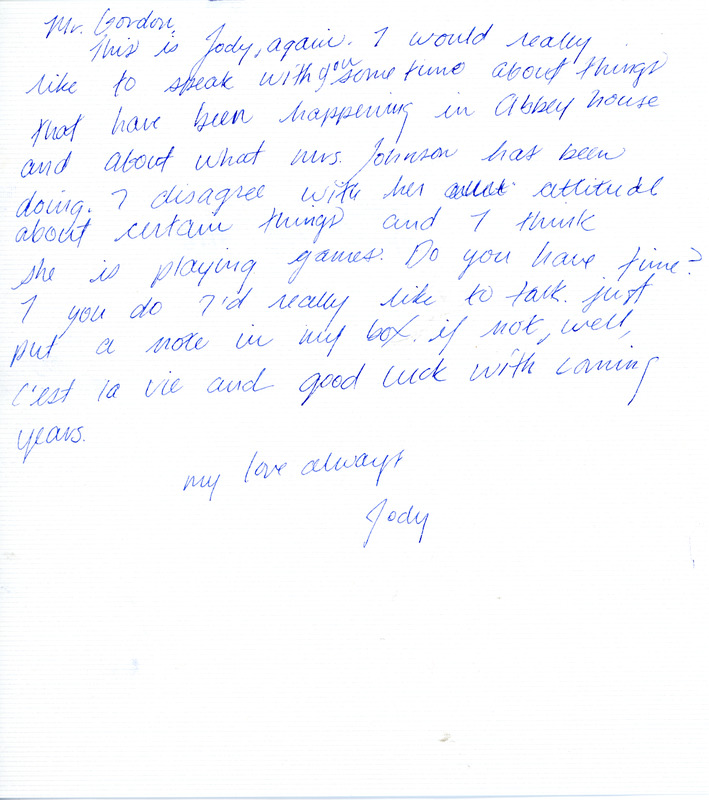 Mr. Gordon,
This is Jody, again. I would really
like to speak with you sometime about things
that have been happening in Abbey house
and about what Mrs. Johnson has been
doing. I disagree with her attitude
about certain things and I think
she is playing games. Do you have time?
I you do I'd really like to talk. just
put a note in my box. if not, well,
c'est la vie and good luck with coming
years.
my love always
Jody